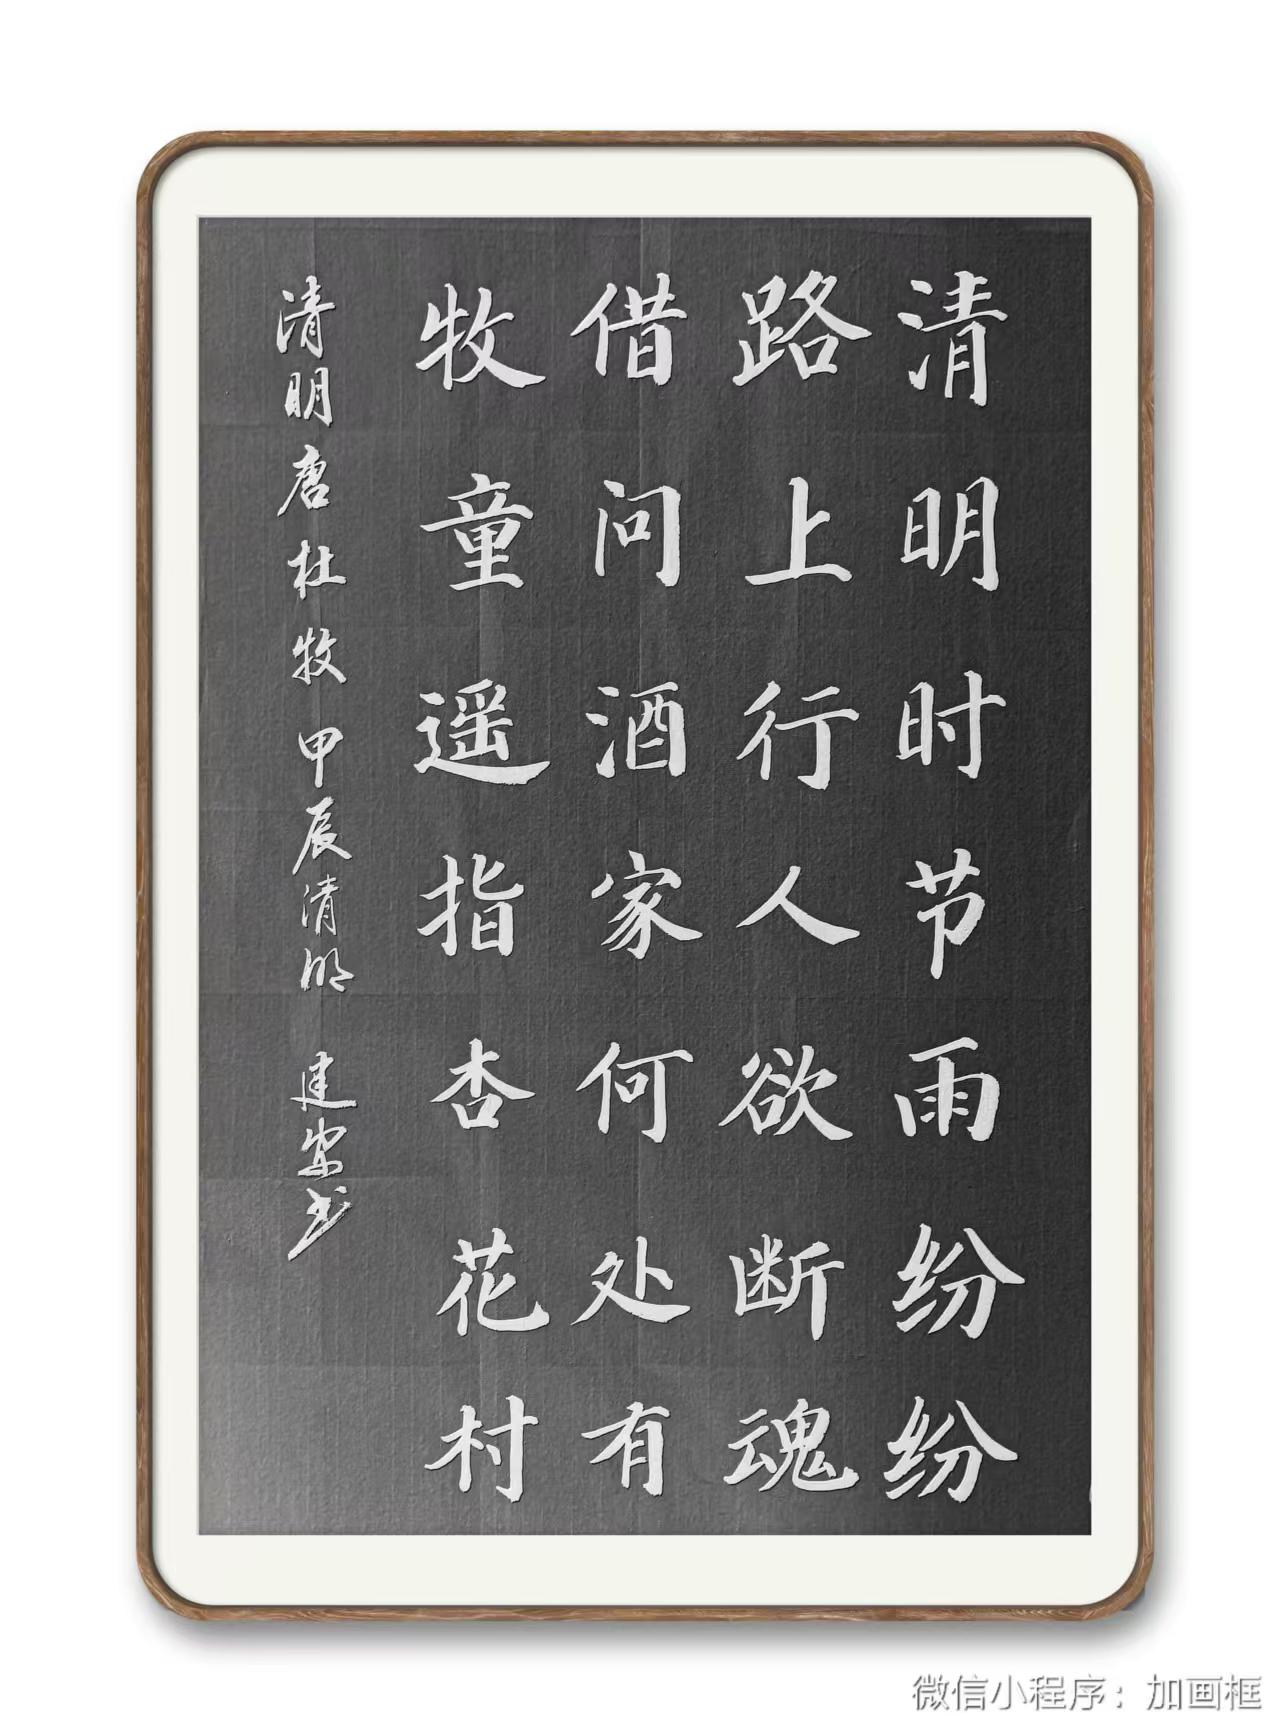 清明时节雨纷纷
路上行人欲断魂
借问酒家何处有
牧童遥指杏花村
清明唐杜牧甲辰清明 建安书
微信小程序：加画框